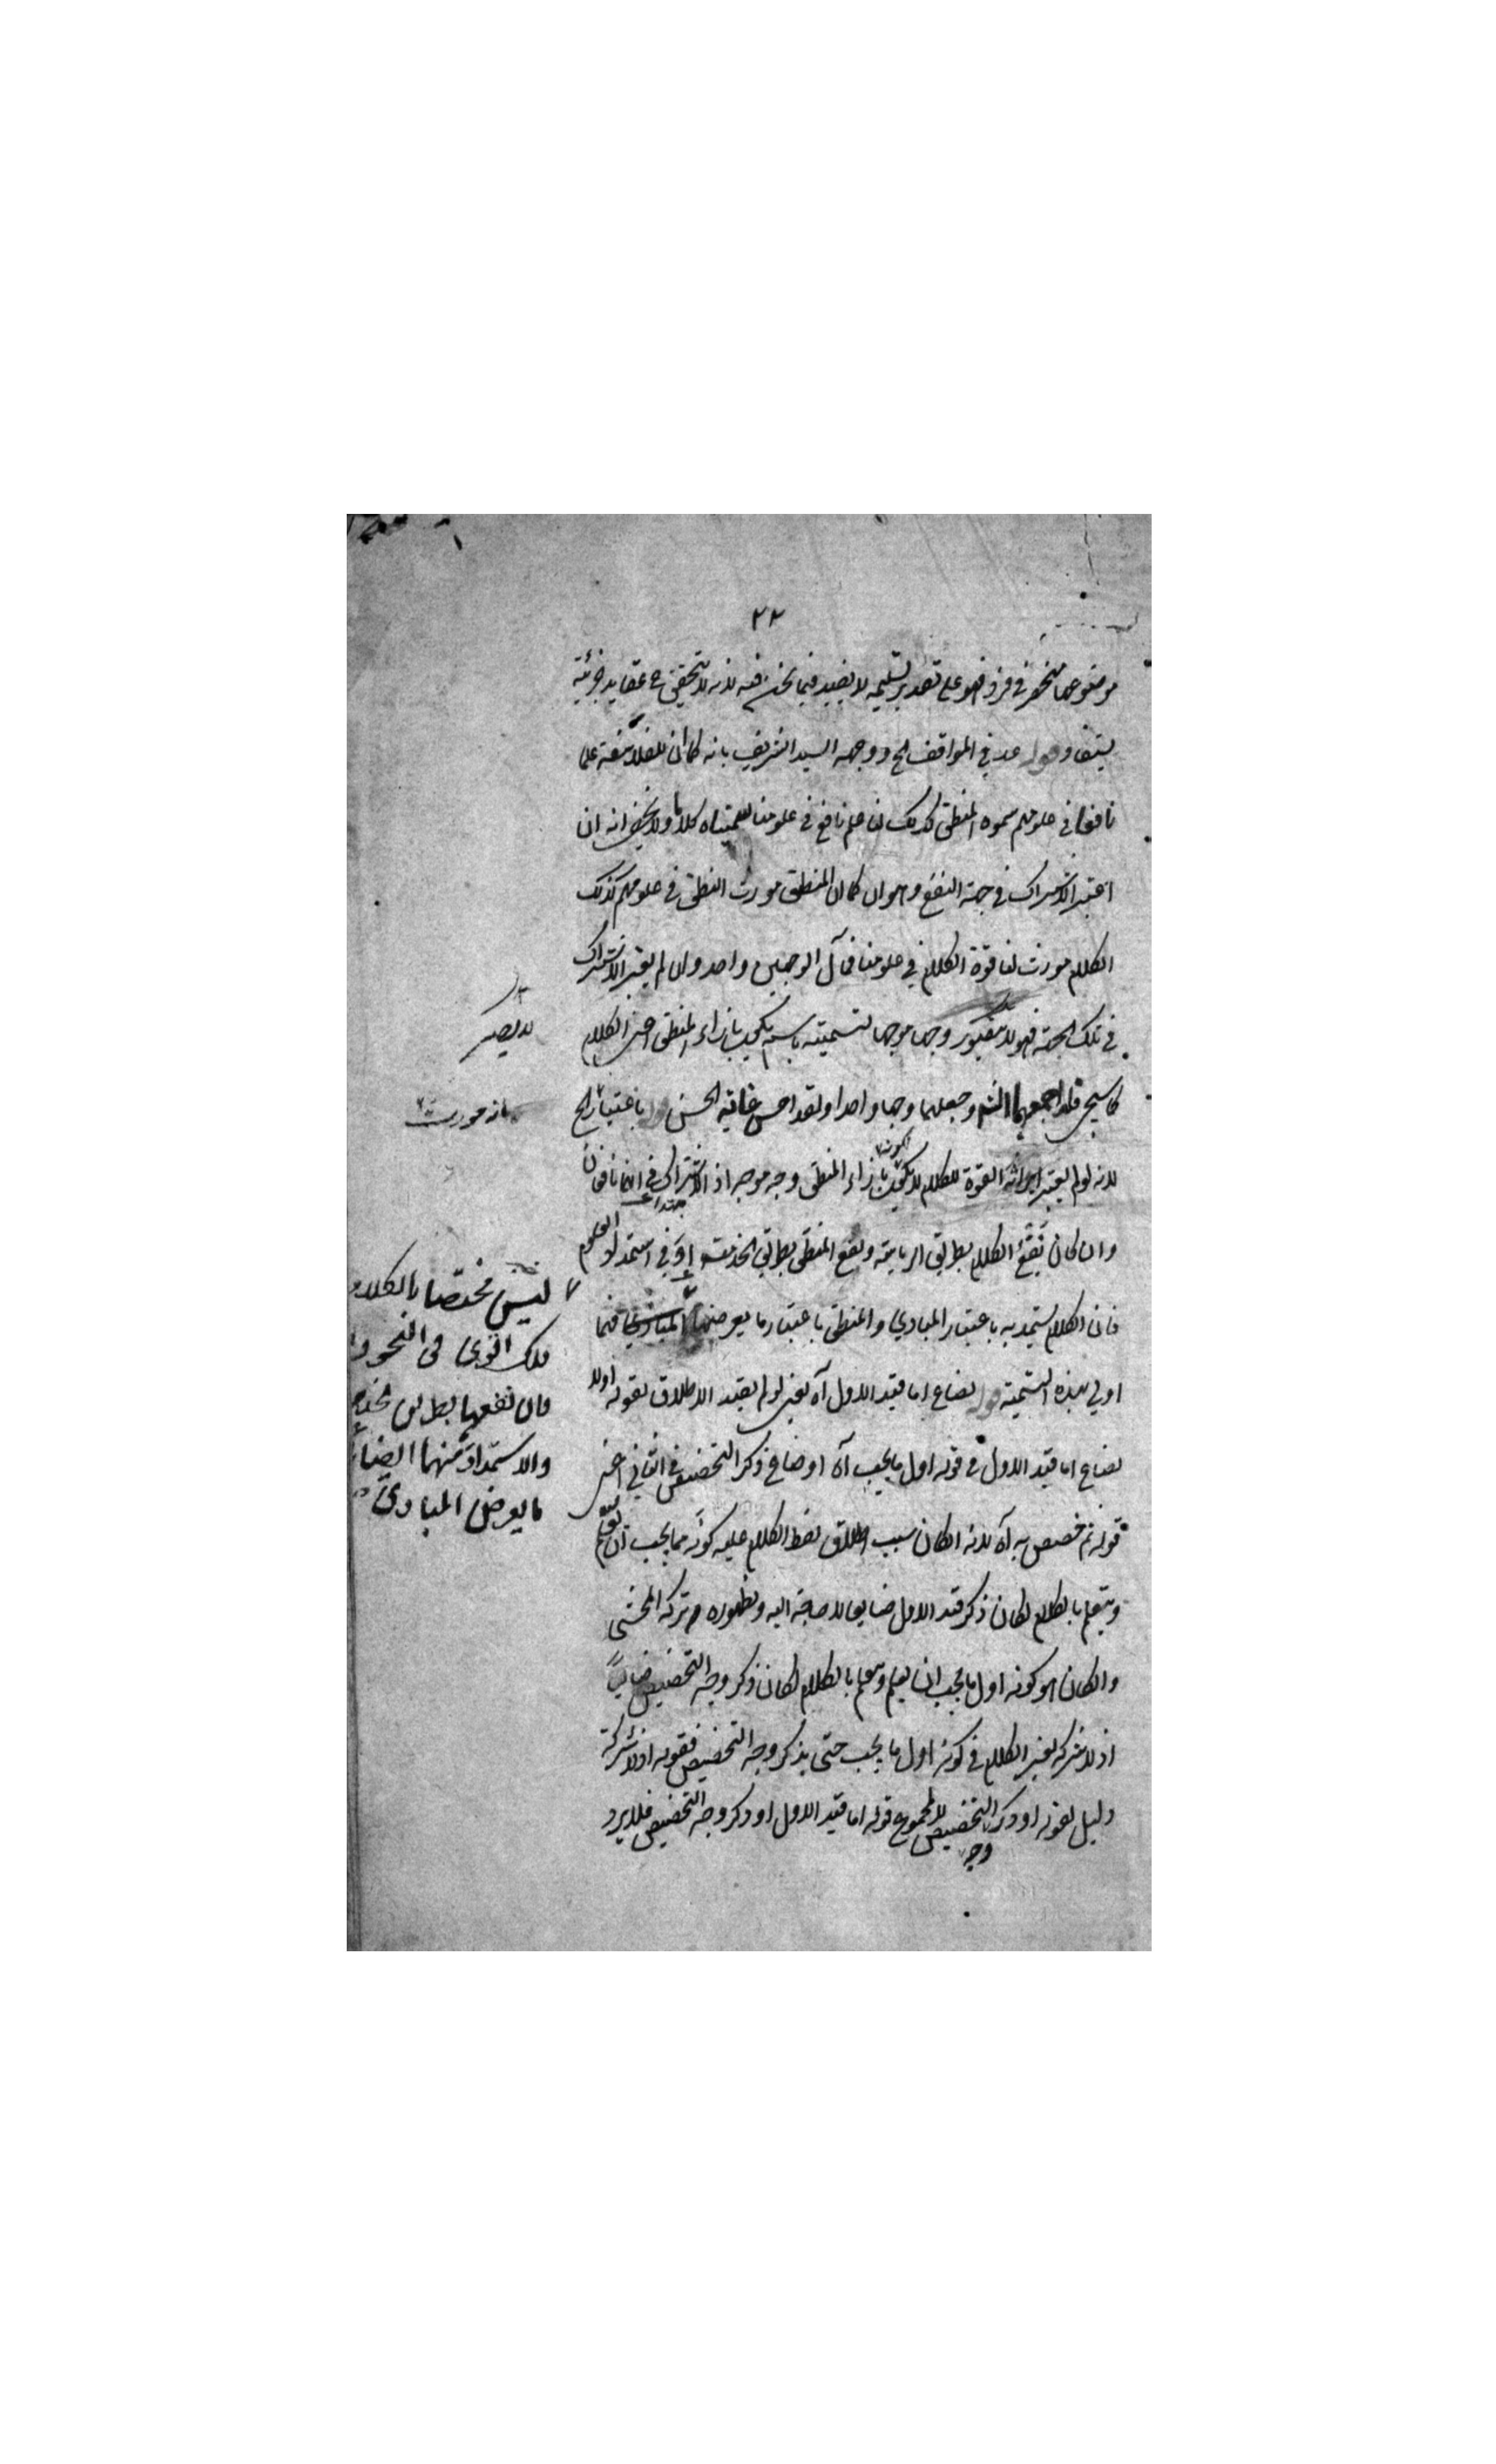 ٢٢
موضوعها منحصر في فرد فهو على تقدير تسليمه لا يفيد فيما نحن فيه لانه لا يتحقق ح عقايد جزئية
يستفاد قوله عد في المواقف الخ ووجهه السيد الشريف بانه كما ان للفلاسفة علما
نافعا في علومهم سموه المنطق كذلك لنا علم نافع في علومنا سميناه كلاما ولا يخفى انه ان
اعتبر الاشتراك في جهة النفع وهو ان كما ان المنطق مورث النطق في علومهم كذلك
الكلام مورث لنا قوة الكلام في علومنا فمآل الوجهين واحد وان لم يعتبر الاشتراك
في تلك الجهة فهو لا يصير وجها موجها لتسميته باسم يكون بازاء المنطق اعني الكلام
كما سيجئ فلذا جمعهما الشه وجعلهما وجها واحدا ولقد احسن غاية الحسن قوله باعتبار الخ
لانه لو لم يعتبر ايراثه القوة للكلام لا يكون لكونه بازاء المنطق وجه موجه اذ الاشتراك في انهما نافعان
وان كان نفع الكلام بطريق الرياسة ونفع المنطق بطريق الخدمة او في استمداد العلوم
فان الكلام يستمد به باعتبار المبادي والمنطق باعتبار ما يعرضها المبادي فيما
اولي بهذه التسمية قوله لضاع اما قيد الاول آه يعني لو لم يقيد الاطلاق بقوله اولا
لضاع اما قيد الاول في قوله اول ما يجب آه او ضاع ذكر التخصيص في الثاني اعني
قوله ثم خصص به آه لانه ان كان سبب اطلاق لفظ الكلام عليه كونه مما يجب ان يعلم
ويتعلم بالكلام لكان ذكر قيد الاول ضايعا لا حاجة اليه ولظهوره تركه المحشي
وان كان هو كونه اول ما يجب ان يعلم ويتعلم بالكلام لكان ذكر وجه التخصيص ضايعا
اذ لا شركة لغير الكلام في كونه اول ما يجب حتى يذكر وجه التخصيص فقوله اذ لا شركة
دليل لقوله او ذكر وجه التخصيص لا لمجموع قوله اما قيد الاول او ذكر وجه التخصيص فلا يرد
لا يصير
بانه مورث
ليس مختصا بالكلام
فان نفعهما بطريق الخدمة
والاستمداد منهما ايضا
ما يعرض المبادي